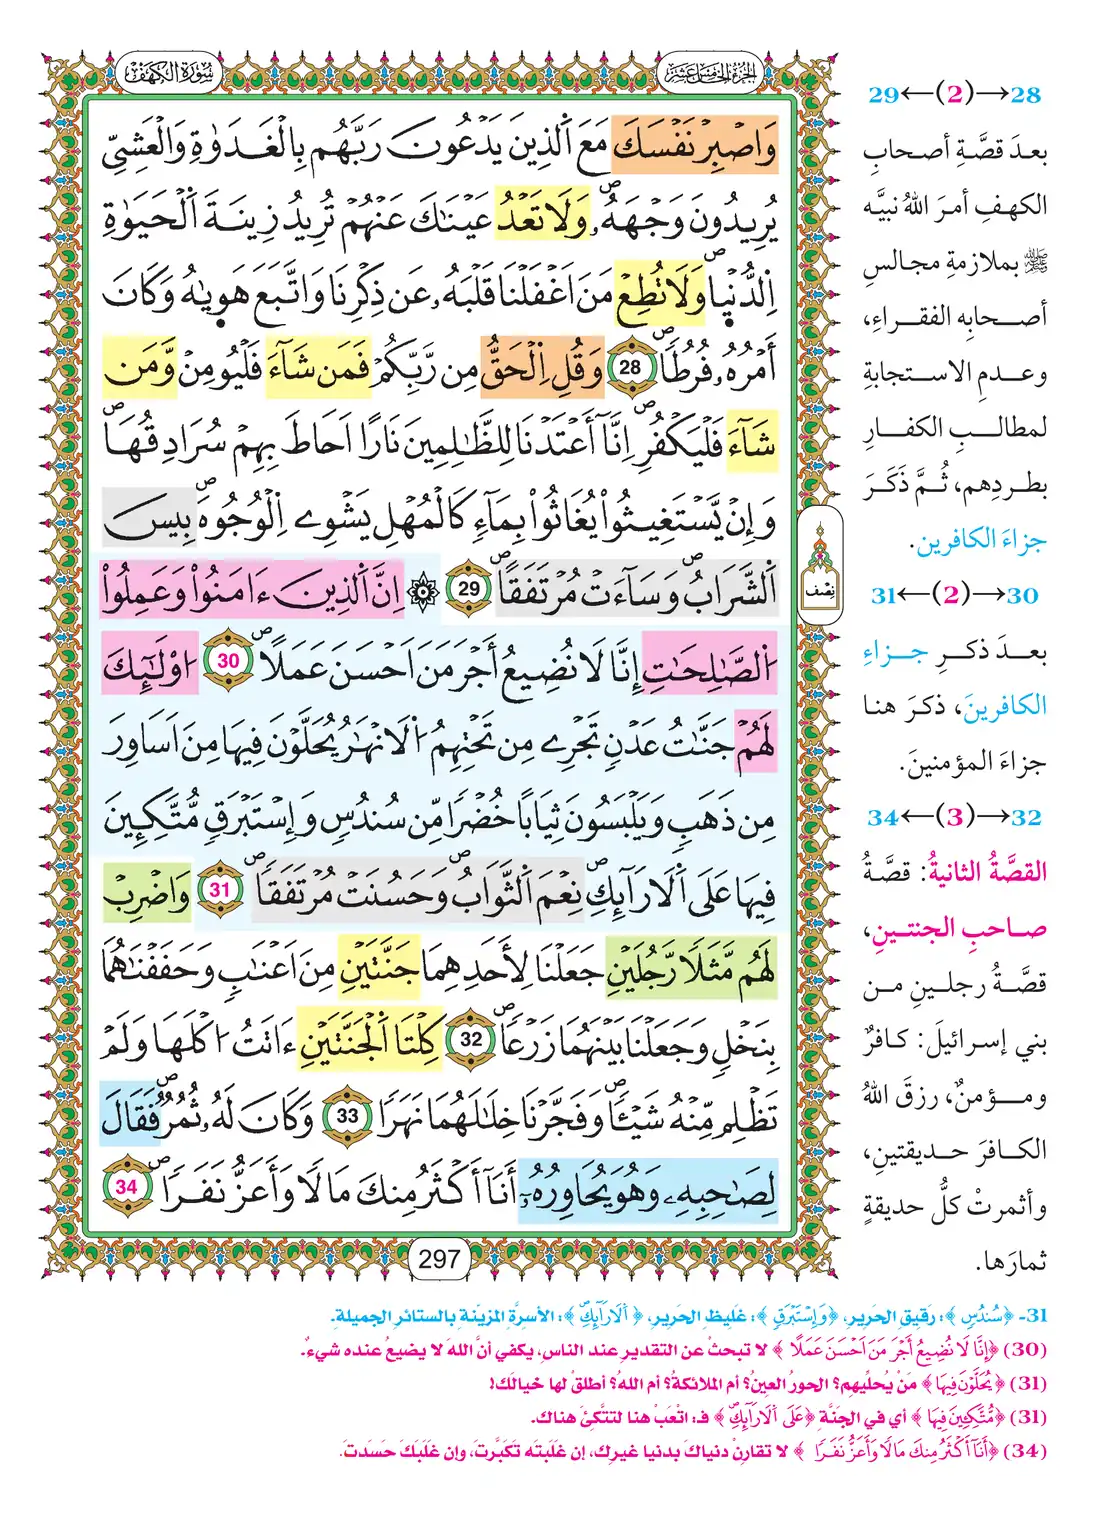 سُورَةُ الكَهْفِ
الجُزءُ الخَامِسَ عَشَرَ
وَاصْبِرْ نَفْسَكَ مَعَ اَلذِينَ يَدْعُونَ رَبَّهُم بِالْغَدَوٰةِ وَالْعَشِيِّ
يُرِيدُونَ وَجْهَهُۥ وَلَا تَعْدُ عَيْنَٰكَ عَنْهُمْ تُرِيدُ زِينَةَ اَلْحَيَوٰةِ
اِلدُّنْي۪ا وَلَا تُطِعْ مَنَ اَغْفَلْنَا قَلْبَهُۥ عَن ذِكْرِنَا وَاتَّبَعَ هَو۪يٰهُ وَكَانَ
أَمْرُهُۥ فُرُطًا 28 وَقُلِ اِلْحَقُّ مِن رَّبِّكُمْ فَمَن شَآءَ فَلْيُومِنْ وَّمَن
شَآءَ فَلْيَكْفُرِ اِنَّآ أَعْتَدْنَا لِلظَّٰلِمِينَ نَارًا اَحَاطَ بِهِمْ سُرَادِقُهَا
وَإِنْ يَّسْتَغِيثُواْ يُغَاثُواْ بِمَآءٖ كَالْمُهْلِ يَشْوِے اِلْوُجُوهَ بِيسَ
اَلشَّرَابُ وَسَآءَتْ مُرْتَفَقًا 29 ۞ اِنَّ اَلذِينَ ءَامَنُواْ وَعَمِلُواْ
اُلصَّٰلِحَٰتِ إِنَّا لَا نُضِيعُ أَجْرَ مَنَ اَحْسَنَ عَمَلًا 30 اُوْلَٰٓئِكَ
لَهُمْ جَنَّٰتُ عَدْنٖ تَجْرِے مِن تَحْتِهِمُ اُلَانْهَٰرُ يُحَلَّوْنَ فِيهَا مِنَ اَسَاوِرَ
مِن ذَهَبٖ وَيَلْبَسُونَ ثِيَابًا خُضْرًا مِّن سُندُسٖ وَإِسْتَبْرَقٖ مُّتَّكِـِٕينَ
فِيهَا عَلَى اَلَارَآئِكِ نِعْمَ اَلثَّوَابُ وَحَسُنَتْ مُرْتَفَقًا 31 وَاضْرِبْ
لَهُم مَّثَلًا رَّجُلَيْنِ جَعَلْنَا لِأَحَدِهِمَا جَنَّتَيْنِ مِنَ اَعْنَٰبٖ وَحَفَفْنَٰهُمَا
بِنَخْلٖ وَجَعَلْنَا بَيْنَهُمَا زَرْعًا 32 كِلْتَا اَلْجَنَّتَيْنِ ءَاتَتُ اُكْلَهَا وَلَمْ
تَظْلِم مِّنْهُ شَيْـًٔا وَفَجَّرْنَا خِلَٰلَهُمَا نَهَرًا 33 وَكَانَ لَهُۥ ثُمُرٌ فَقَالَ
لِصَٰحِبِهِۦ وَهُوَ يُحَاوِرُهُۥٓ أَنَآ أَكْثَرُ مِنكَ مَالًا وَأَعَزُّ نَفَرًا 34
نصف
297
28→(2)←29
بعدَ قصَّةِ أصحابِ
الكهفِ أمرَ اللهُ نبيَّه
ﷺ بملازمةِ مجالسِ
أصحابِه الفقراءِ،
وعدمِ الاستجابةِ
لمطالبِ الكفارِ
بطردِهم، ثُمَّ ذَكَرَ
جزاءَ الكافرين.
30→(2)←31
بعدَ ذكرِ جزاءِ
الكافرينَ، ذكرَ هنا
جزاءَ المؤمنينَ.
32→(3)←34
القصَّةُ الثانيةُ: قصَّةُ
صاحبِ الجنتينِ،
قصَّةُ رجلينِ من
بني إسرائيلَ: كافرٌ
ومؤمنٌ، رزقَ اللهُ
الكافرَ حديقتينِ،
وأثمرتْ كلُّ حديقةٍ
ثمارَها.
31- ﴿سُندُسٖ﴾: رَقيقِ الحَريرِ، ﴿وَإِسْتَبْرَقٖ﴾: غَليظِ الحَريرِ، ﴿اَلَارَآئِكِ﴾: الأسرَّةِ المزيّنةِ بالستائرِ الجميلةِ.
(30) ﴿إِنَّا لَا نُضِيعُ أَجْرَ مَنَ اَحْسَنَ عَمَلًا﴾ لا تبحثْ عن التقديرِ عند الناسِ، يكفي أنَّ اللهَ لا يضيعُ عنده شيءٌ.
(31) ﴿يُحَلَّوْنَ فِيهَا﴾ مَنْ يُحلِّيهِم؟ الحورُ العينُ؟ أم الملائكةُ؟ أم اللهُ؟ أطلقْ لها خيالَك!
(31) ﴿مُّتَّكِـِٕينَ فِيهَا﴾ أي في الجَنَّةِ ﴿عَلَى اَلَارَآئِكِ﴾ فـ: اتْعَبْ هنا لتتَّكِئَ هناكَ.
(34) ﴿أَنَآ أَكْثَرُ مِنكَ مَالًا وَأَعَزُّ نَفَرًا﴾ لا تقارنْ دنياكَ بدنيا غيرِك، إن غلَبتَه تكبَّرتَ، وإن غلَبَكَ حَسَدتَ.